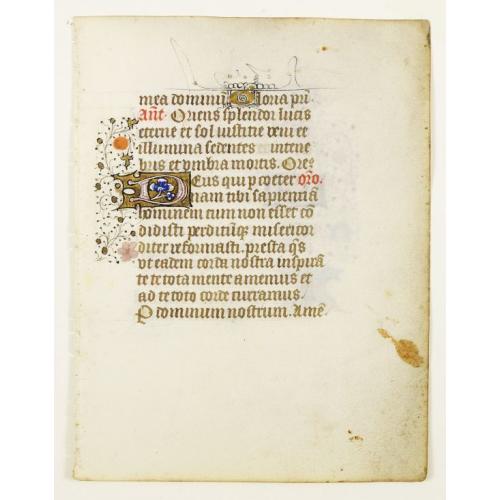 mea domini Gloria pri.
Añe. Oriens splendor lucis
eterne et sol iustitie veni et
illumina sedentes in tene
bris et vmbra mortis. Ore.
Deus qui p coeter oro.
nam tibi sapientiã
hominem cum non esset cõ
didisti perditũq; misericor
diter reformasti. presta q̃s
vt eadem corda nostra inspirã
te te tota mente amemus et
ad te toto corde curramus.
P dominum nostrum. Amẽ.